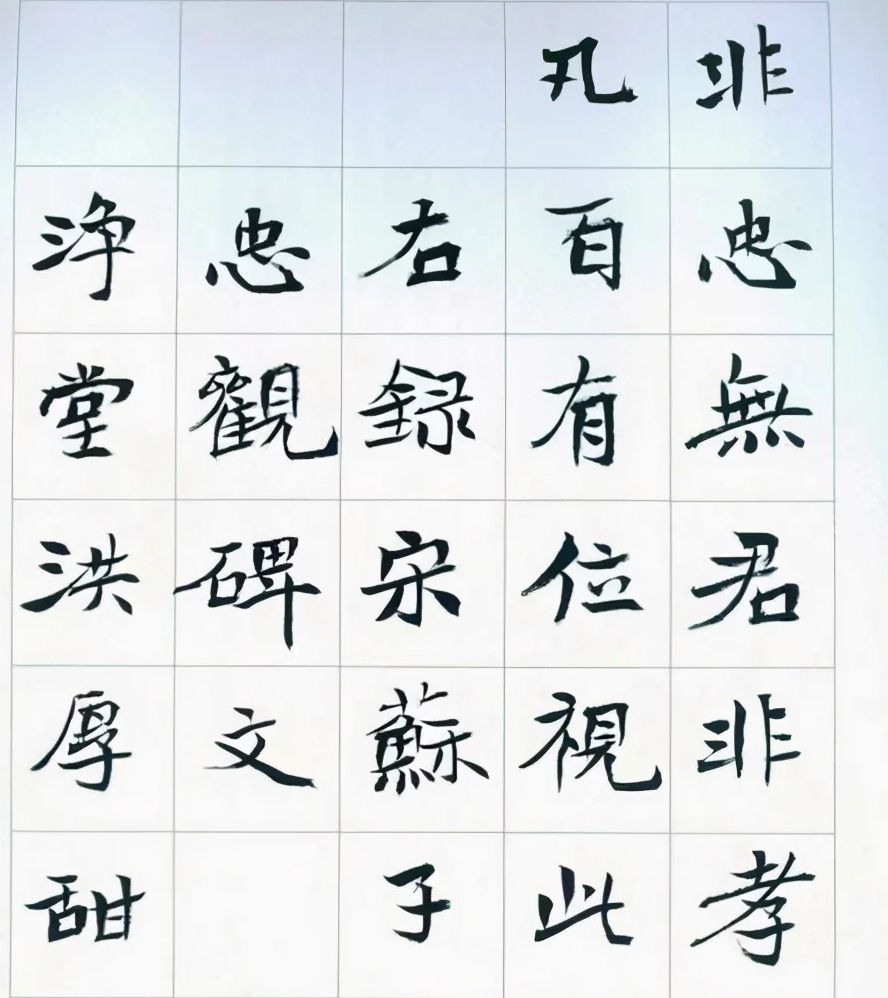 非忠無君非孝
凡百有位視此
右録宋蘇子
忠觀碑文
浄堂洪厚甜